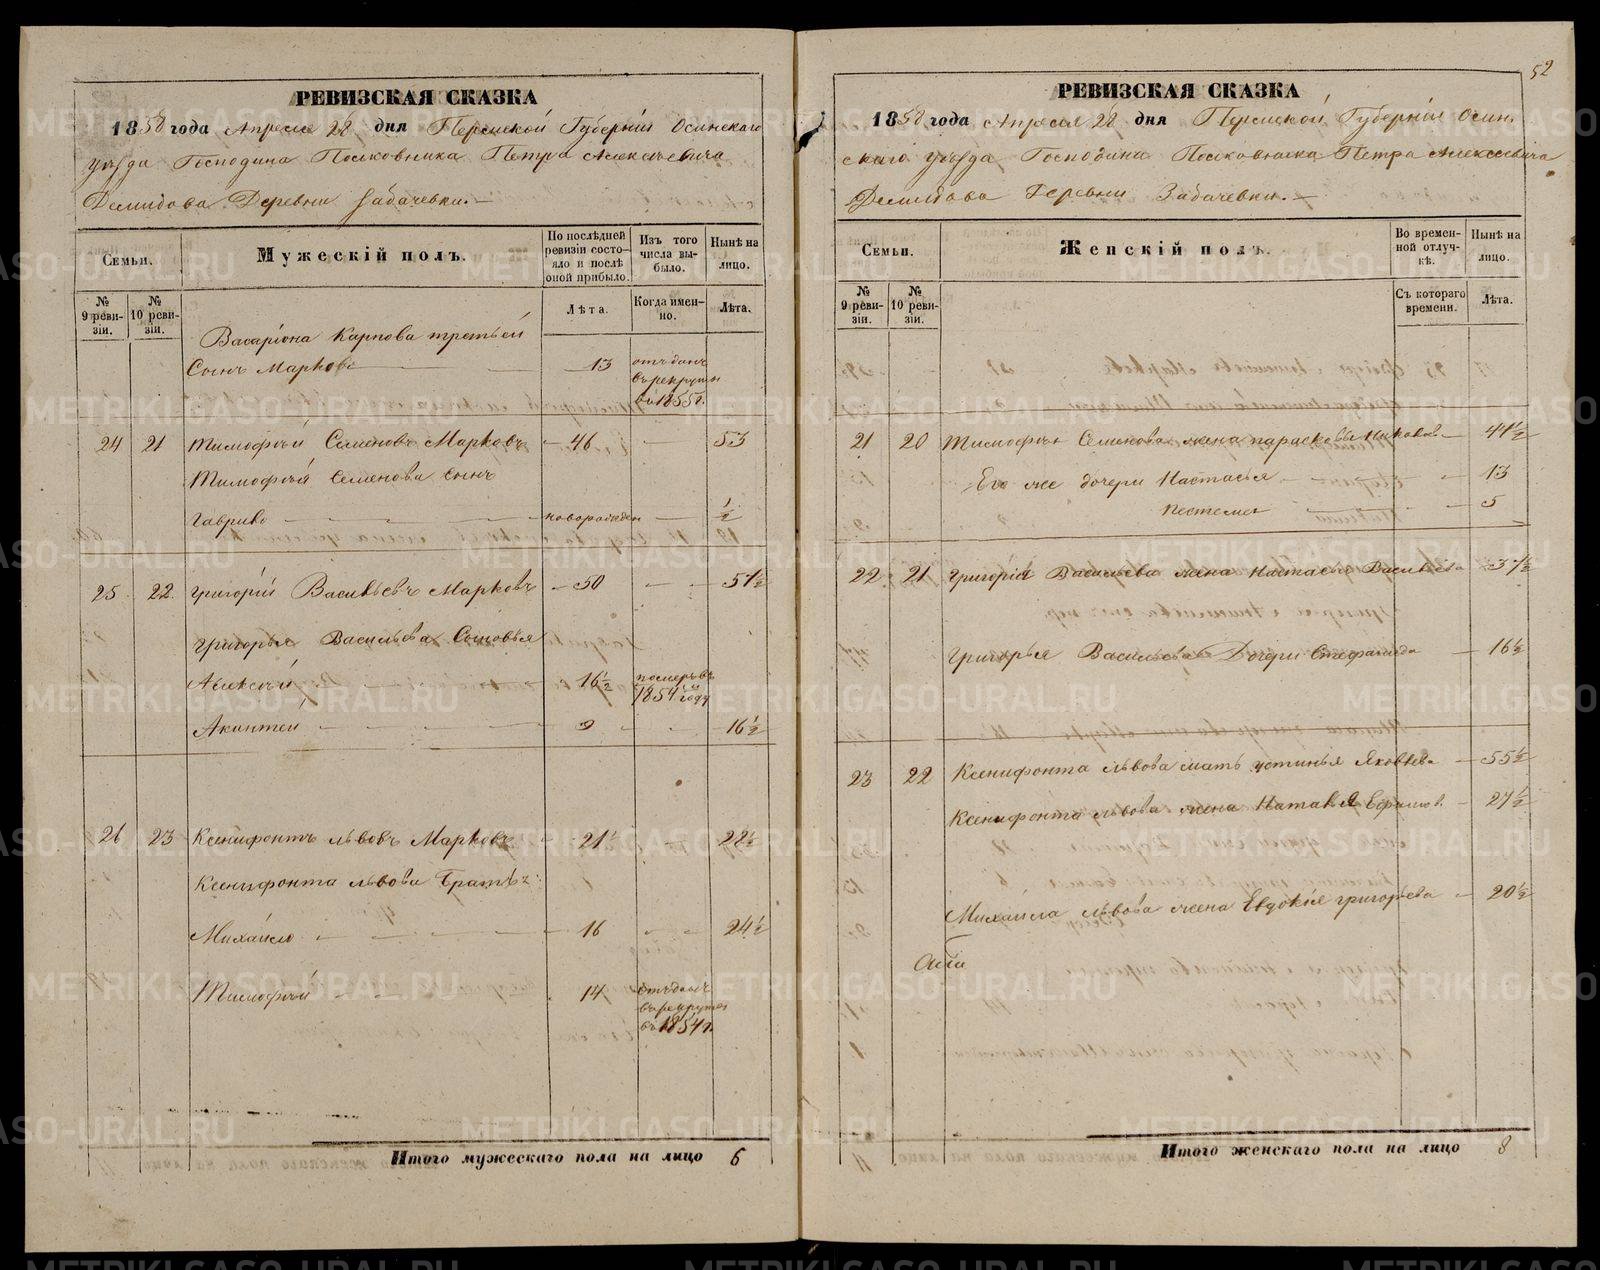 РЕВИЗСКАЯ СКАЗКА
1858 года Апреля 28 дня Пермской Губерніи Осинскаго
уѣзда Господина Полковника Петра Алексѣевича
Демидова Деревни Забачевки.
Семьи.
Мужескій полъ.
По послѣдней ревизіи состояло и послѣ оной прибыло.
Изъ того числа выбыло.
Нынѣ на лицо.
№ 9 ревизіи.
№ 10 ревизіи.
Лѣта.
Когда именно.
Лѣта.
Васаріона Карпова третьей
Сынъ Марково 13 отъданъ въ рекруты въ 1855 г.
24 21 Тимофѣй Семеновъ Марковъ 46 53
Тимофѣя Семенова сынъ
Гаврило новорожден ½
25 22 Григорій Васильевъ Марковъ 50 57½
Григорья Васильева Сыновья
Алексѣй 16½ померъ въ 1854 году
Акинтей 9 16½
26 23 Ксенифонтъ Львовъ Марковъ 21½ 28½
Ксенифонта Львова Братья:
Михайло 16 24½
Тимофѣй 14 отъданъ въ рекруты въ 1854 г.
Итого мужескаго пола на лицо 6
52
РЕВИЗСКАЯ СКАЗКА
1858 года Апреля 28 дня Пермской Губерніи Осин-
скаго уѣзда Господина Полковника Петра Алексеевича
Демидова Деревни Забачевки.
Семьи.
Женскій полъ.
Во временной отлучкѣ.
Нынѣ на лицо.
№ 9 ревизіи.
№ 10 ревизіи.
Съ котораго времени.
Лѣта.
21 20 Тимофѣя Семенова жена Парасковья 41½
Его же дочери Настасья 13
5
22 21 Григорія Васильева жена Настасья Васильева 57½
Григорья Васильева Дочери Стефанида 16½
23 22 Ксенифонта Львова мать Устинья Яковлева 55½
Ксенифонта Львова жена Наталья Ефимов. 27½
Михаила Львова жена Евдокія Григорьева 20½
Итого женскаго пола на лицо 8
METRIKI.GASO-URAL.RU